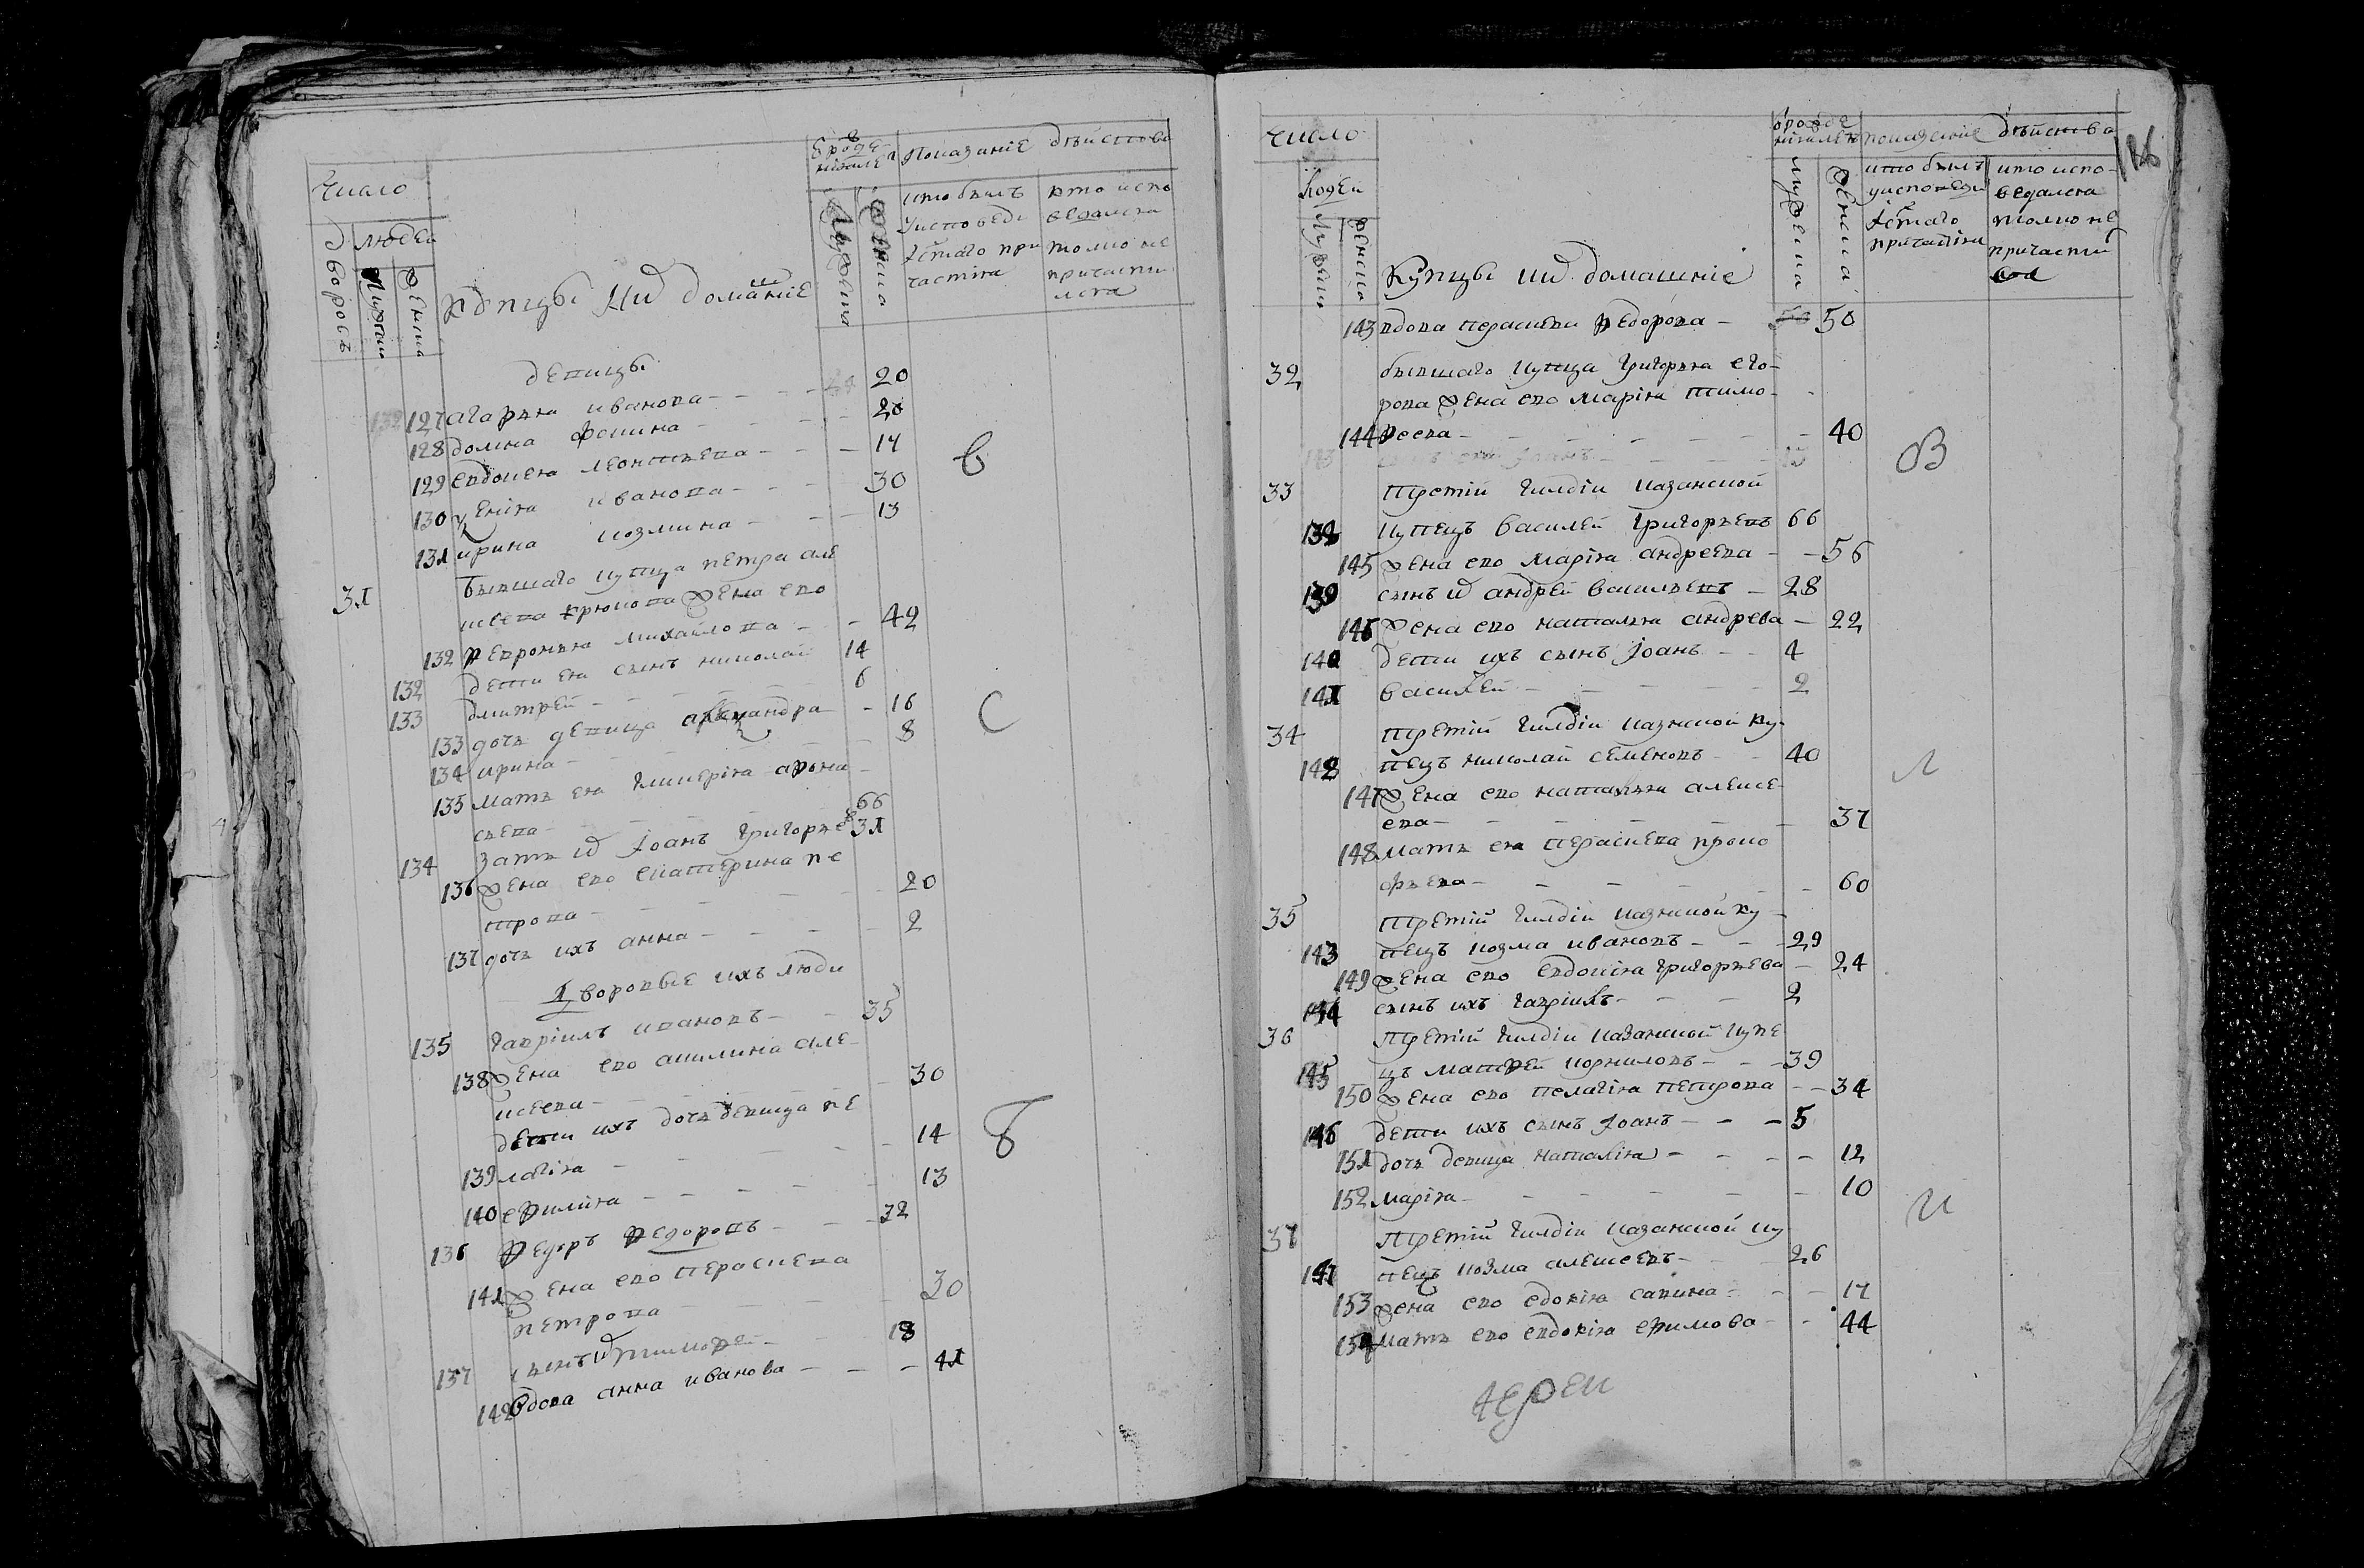 Число
Дворовъ
людей
Мужеска
Женска
Купцы и их домашніе
Показание действа
кто былъ
у исповеди
и стаго при
частія
кто испо
ведался
толко не
причасти
лся
девицы
127 агафья иванова - - - 20
128 домна фомина - - - 20
129 евдокея леонтьева - - - 17
130 ксенія иванова - - - 30
131 ирина козмина - - - 13
31 бывшаго купца петра але
ксеева крюкова жена ево
132 февронья михайлова - - 42
132 дети ея сынъ николай 14
133 дмитрей - - - 6
133 дочь девица александра - 16
134 ирина - - - 8
135 мать ея гликерія афона
сьева - - - 66
134 зять их Iоанъ григорьев 31
136 жена ево екатерина пе
трова - - - 20
137 дочь ихъ анна - - - 2
Дворовые ихъ люди
135 гавріилъ ивановъ - - 35
138 жена ево акилина але
ксеева - - - 30
дети ихъ дочь девица пе
139 лагія - - - 14
140 ефимія - - - 13
136 Федоръ Федоровъ - - - 32
141 жена ево Пераскева
петрова - - - 30
137 сынъ их тимофей - - 18
142 вдова анна иванова - - - 41
126
Число
людей
Мужеска
Женска
Купцы их домашніе
показание действа
кто былъ
у исповеди
и стаго
причастія
кто испо-
ведался
толко не
причастил
ся
143 вдова Пераскева Федорова - 50
32 бывшаго купца григорья его-
рова жена ево марія тимо-
144 феева - - - 40
33 третій гилдіи казанской
138 купецъ василей григорьевъ 66
145 жена ево марія андреева - - 56
139 сынъ их андрей васильевъ - 28
146 жена ево наталья андрева - 22
140 дети ихъ сынъ Iоанъ - - 4
141 василей - - - 2
34 третій гилдіи казнской ку-
142 пецъ николай семеновъ - - 40
147 жена ево наталья алексе
ева - - - 37
148 мать ея Пераскева проко
фьева - - - 60
35 третій гилдіи казнской ку-
143 пецъ козма ивановъ - - - 29
149 жена ево евдокія григорьева - 24
144 сынъ ихъ гавріилъ - - - 2
36 третій гилдіи казанской купе
145 цъ матфей корниловъ - - - 39
150 жена ево пелагія петрова - - 34
146 дети ихъ сынъ Iоанъ - - - 5
151 дочь девица наталія - - - 12
152 марія - - - 10
37 третій гилдіи казанской ку
147 пецъ козма алексеевъ - - 26
153 жена ево едокія савина - - - 17
154 мать ево евдокія ефимова - - 44
Iерей